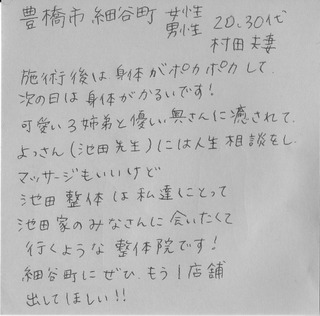 豊橋市 細谷町 女性
男性 20、30代
村田夫妻
施術後は身体がポカポカして、
次の日は身体がかるいです!
可愛い3姉弟と優しい奥さんに癒されて、
よっさん(池田先生)には人生相談をし、
マッサージもいいけど
池田整体は私達にとって
池田家のみなさんに会いたくて
行くような整体院です!
細谷町にぜひ、もう1店舗
出してほしい!!